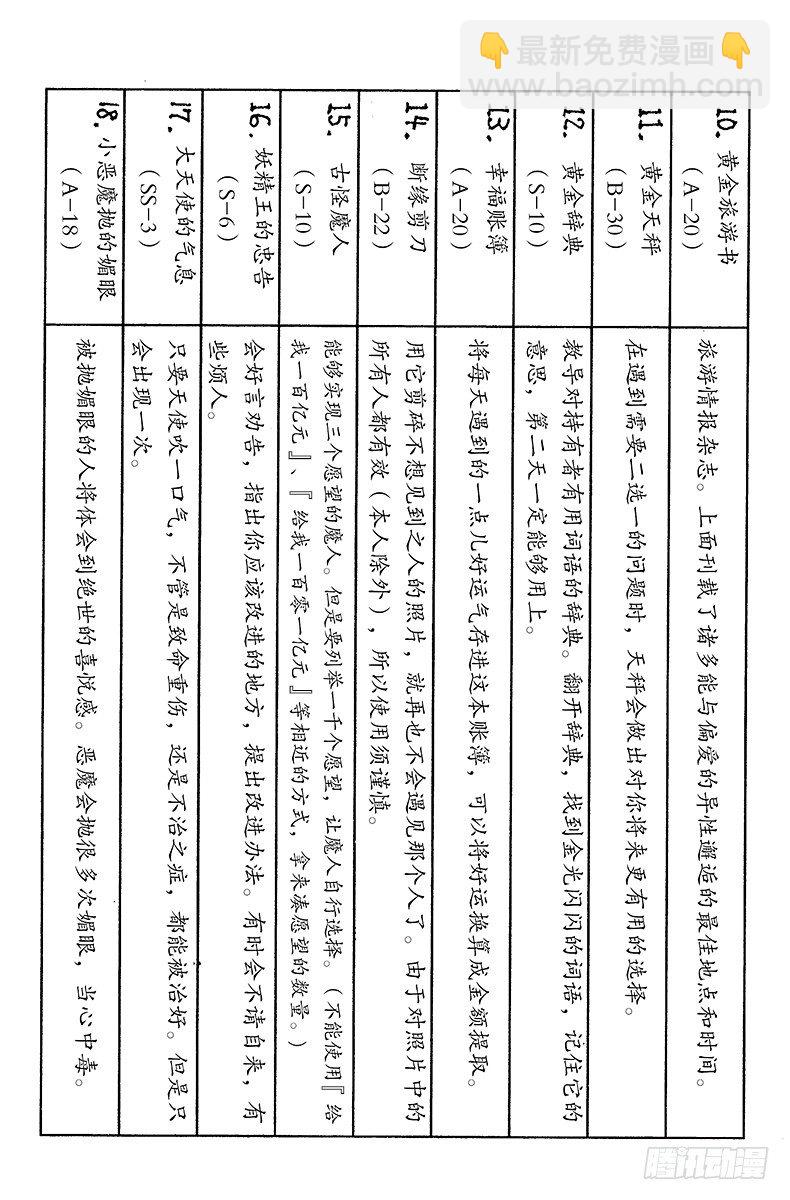 👇最新免费漫画👇
www.baozimh.com
10. 黄金旅游书
(A-20)
旅游情报杂志。上面刊载了诸多能与偏爱的异性邂逅的最佳地点和时间。
11. 黄金天秤
(B-30)
在遇到需要二选一的问题时，天秤会做出对你将来更有用的选择。
12. 黄金辞典
(S-10)
教导对持有者有用词语的辞典。翻开辞典，找到金光闪闪的词语，记住它的
意思，第二天一定能够用上。
13. 幸福账簿
(A-20)
将每天遇到的一点儿好运气存进这本账簿，可以将好运换算成金额提取。
14. 断缘剪刀
(B-22)
用它剪碎不想见到之人的照片，就再也不会遇见那个人了。由于对照片中的
所有人都有效（本人除外），所以使用须谨慎。
15. 古怪魔人
(S-10)
能够实现三个愿望的魔人。但是要列举一千个愿望，让魔人自行选择。（不能使用『给
我一百亿元』、『给我一百零一亿元』等相近的方式，拿来凑愿望的数量。）
16. 妖精王的忠告
(S-6)
会好言劝告，指出你应该改进的地方，提出改进办法。有时会不请自来，有
些烦人。
17. 大天使的气息
(SS-3)
只要天使吹一口气，不管是致命重伤，还是不治之症，都能被治好。但是只
会出现一次。
18. 小恶魔抛的媚眼
(A-18)
被抛媚眼的人将体会到绝世的喜悦感。恶魔会抛很多次媚眼，当心中毒。
腾讯动漫